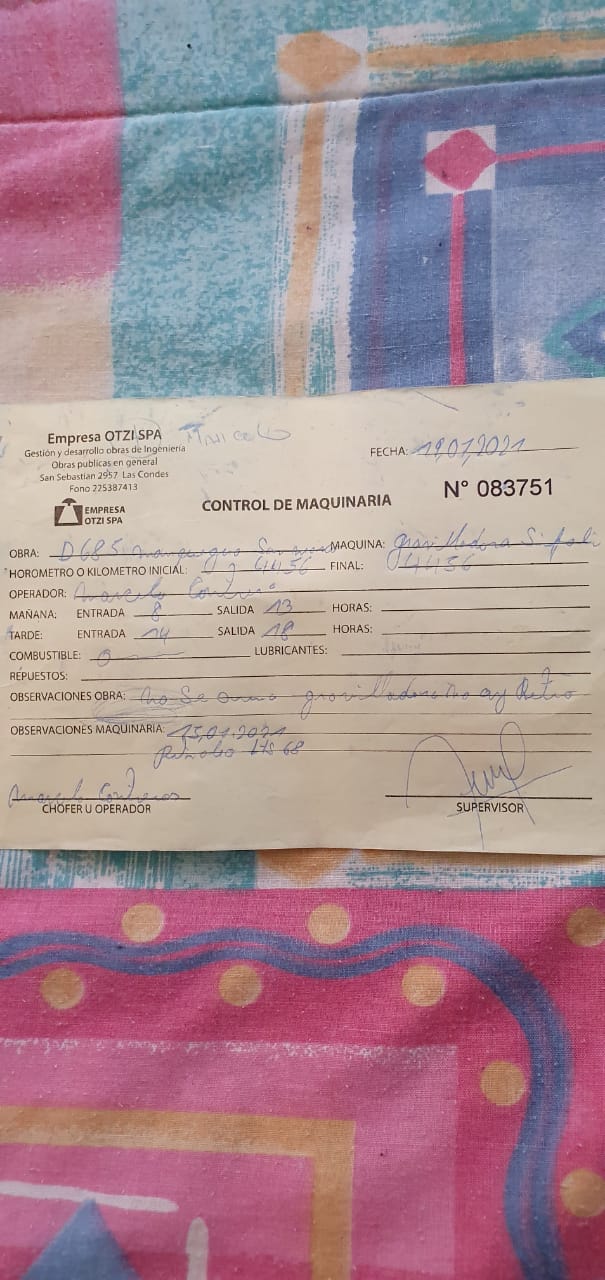 Empresa OTZI SPA
Gestión y desarrollo obras de Ingeniería
Obras publicas en general
San Sebastian 2957 Las Condes
Fono 225387413
EMPRESA
OTZI SPA
Marcelo
FECHA: 19,01,2021
CONTROL DE MAQUINARIA
N° 083751
OBRA: D685 MAQUINA: gravilladora
HOROMETRO O KILOMETRO INICIAL: 04456 FINAL: 04456
OPERADOR: Marcelo Contreras
MAÑANA: ENTRADA 8 SALIDA 13 HORAS:
TARDE: ENTRADA 14 SALIDA 18 HORAS:
COMBUSTIBLE: 0 LUBRICANTES:
REPUESTOS:
OBSERVACIONES OBRA: no Se gravilladora no ay Retro
OBSERVACIONES MAQUINARIA: 15,01.2021
lts 68
Marcelo Contreras
CHOFER U OPERADOR
SUPERVISOR